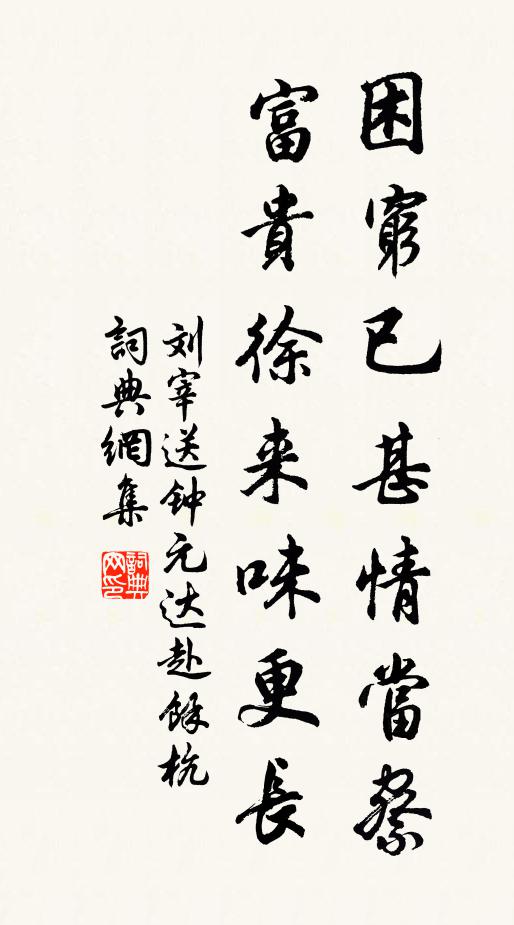 困窮已甚情當察
富貴徐来味更長
刘宰送钟元达赴餘杭
詞典網集
詞典
网印